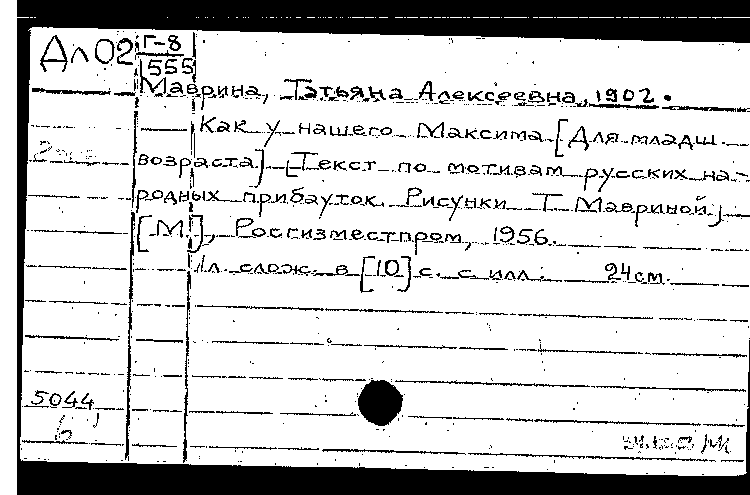 Дл 02 Г-8
555
Маврина, Татьяна Алексеевна, 1902.
Как у нашего Максима [Для младш.
возраста] [Текст по мотивам русских на-
родных прибауток. Рисунки Т Мавриной]
[М.], Росгизместпром, 1956.
1л. слож. в [10] с. с илл. 24см.
5044
6